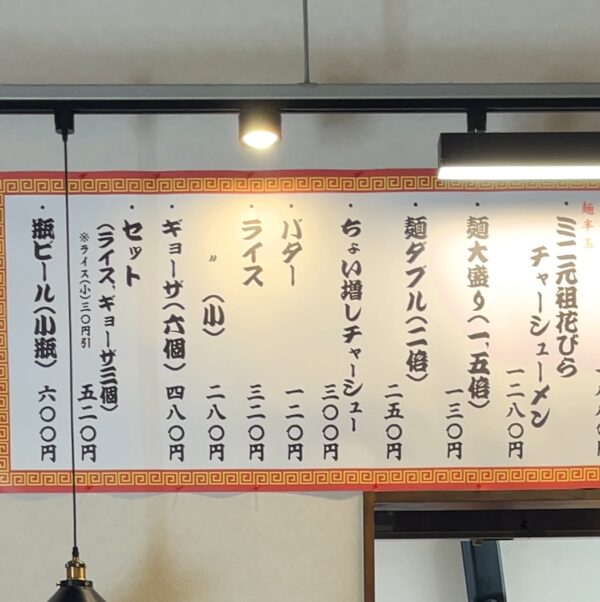 麺半玉
・ミニ元祖花びら
チャーシューメン
一二八〇円
・麺大盛り(一、五倍)
一三〇円
・麺ダブル(二倍)
二五〇円
・ちょい増しチャーシュー
三〇〇円
・バター
一二〇円
・ライス
三二〇円
〃(小)
二八〇円
・ギョーザ(六個)
四八〇円
・セット
(ライス、ギョーザ三個)
※ライス(小)三〇円引
五二〇円
・瓶ビール(小瓶)
六〇〇円